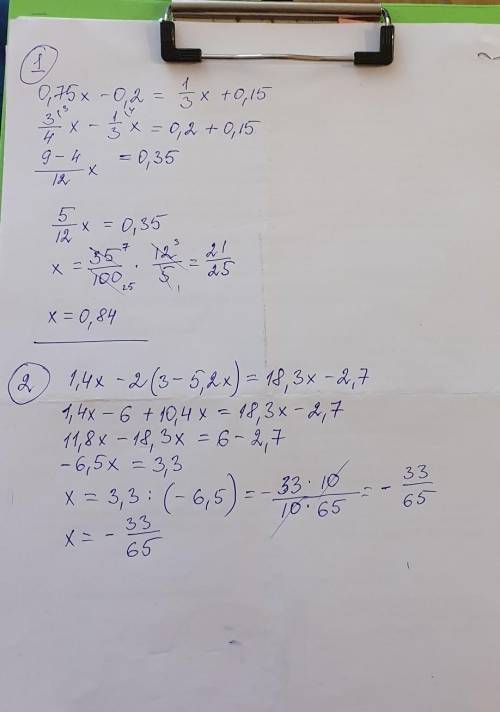 1
0,75x - 0,2 = 1/3 x + 0,15
3/4 x (3 - 1/3 x (4 = 0,2 + 0,15
9-4/12 x = 0,35
5/12 x = 0,35
x = 35 7/100 25 · 12 3/5 1 = 21/25
x = 0,84
2
1,4x - 2(3 - 5,2x) = 18,3x - 2,7
1,4x - 6 + 10,4x = 18,3x - 2,7
11,8x - 18,3x = 6 - 2,7
-6,5x = 3,3
x = 3,3 : (-6,5) = - 33·10/10·65 = - 33/65
x = - 33/65